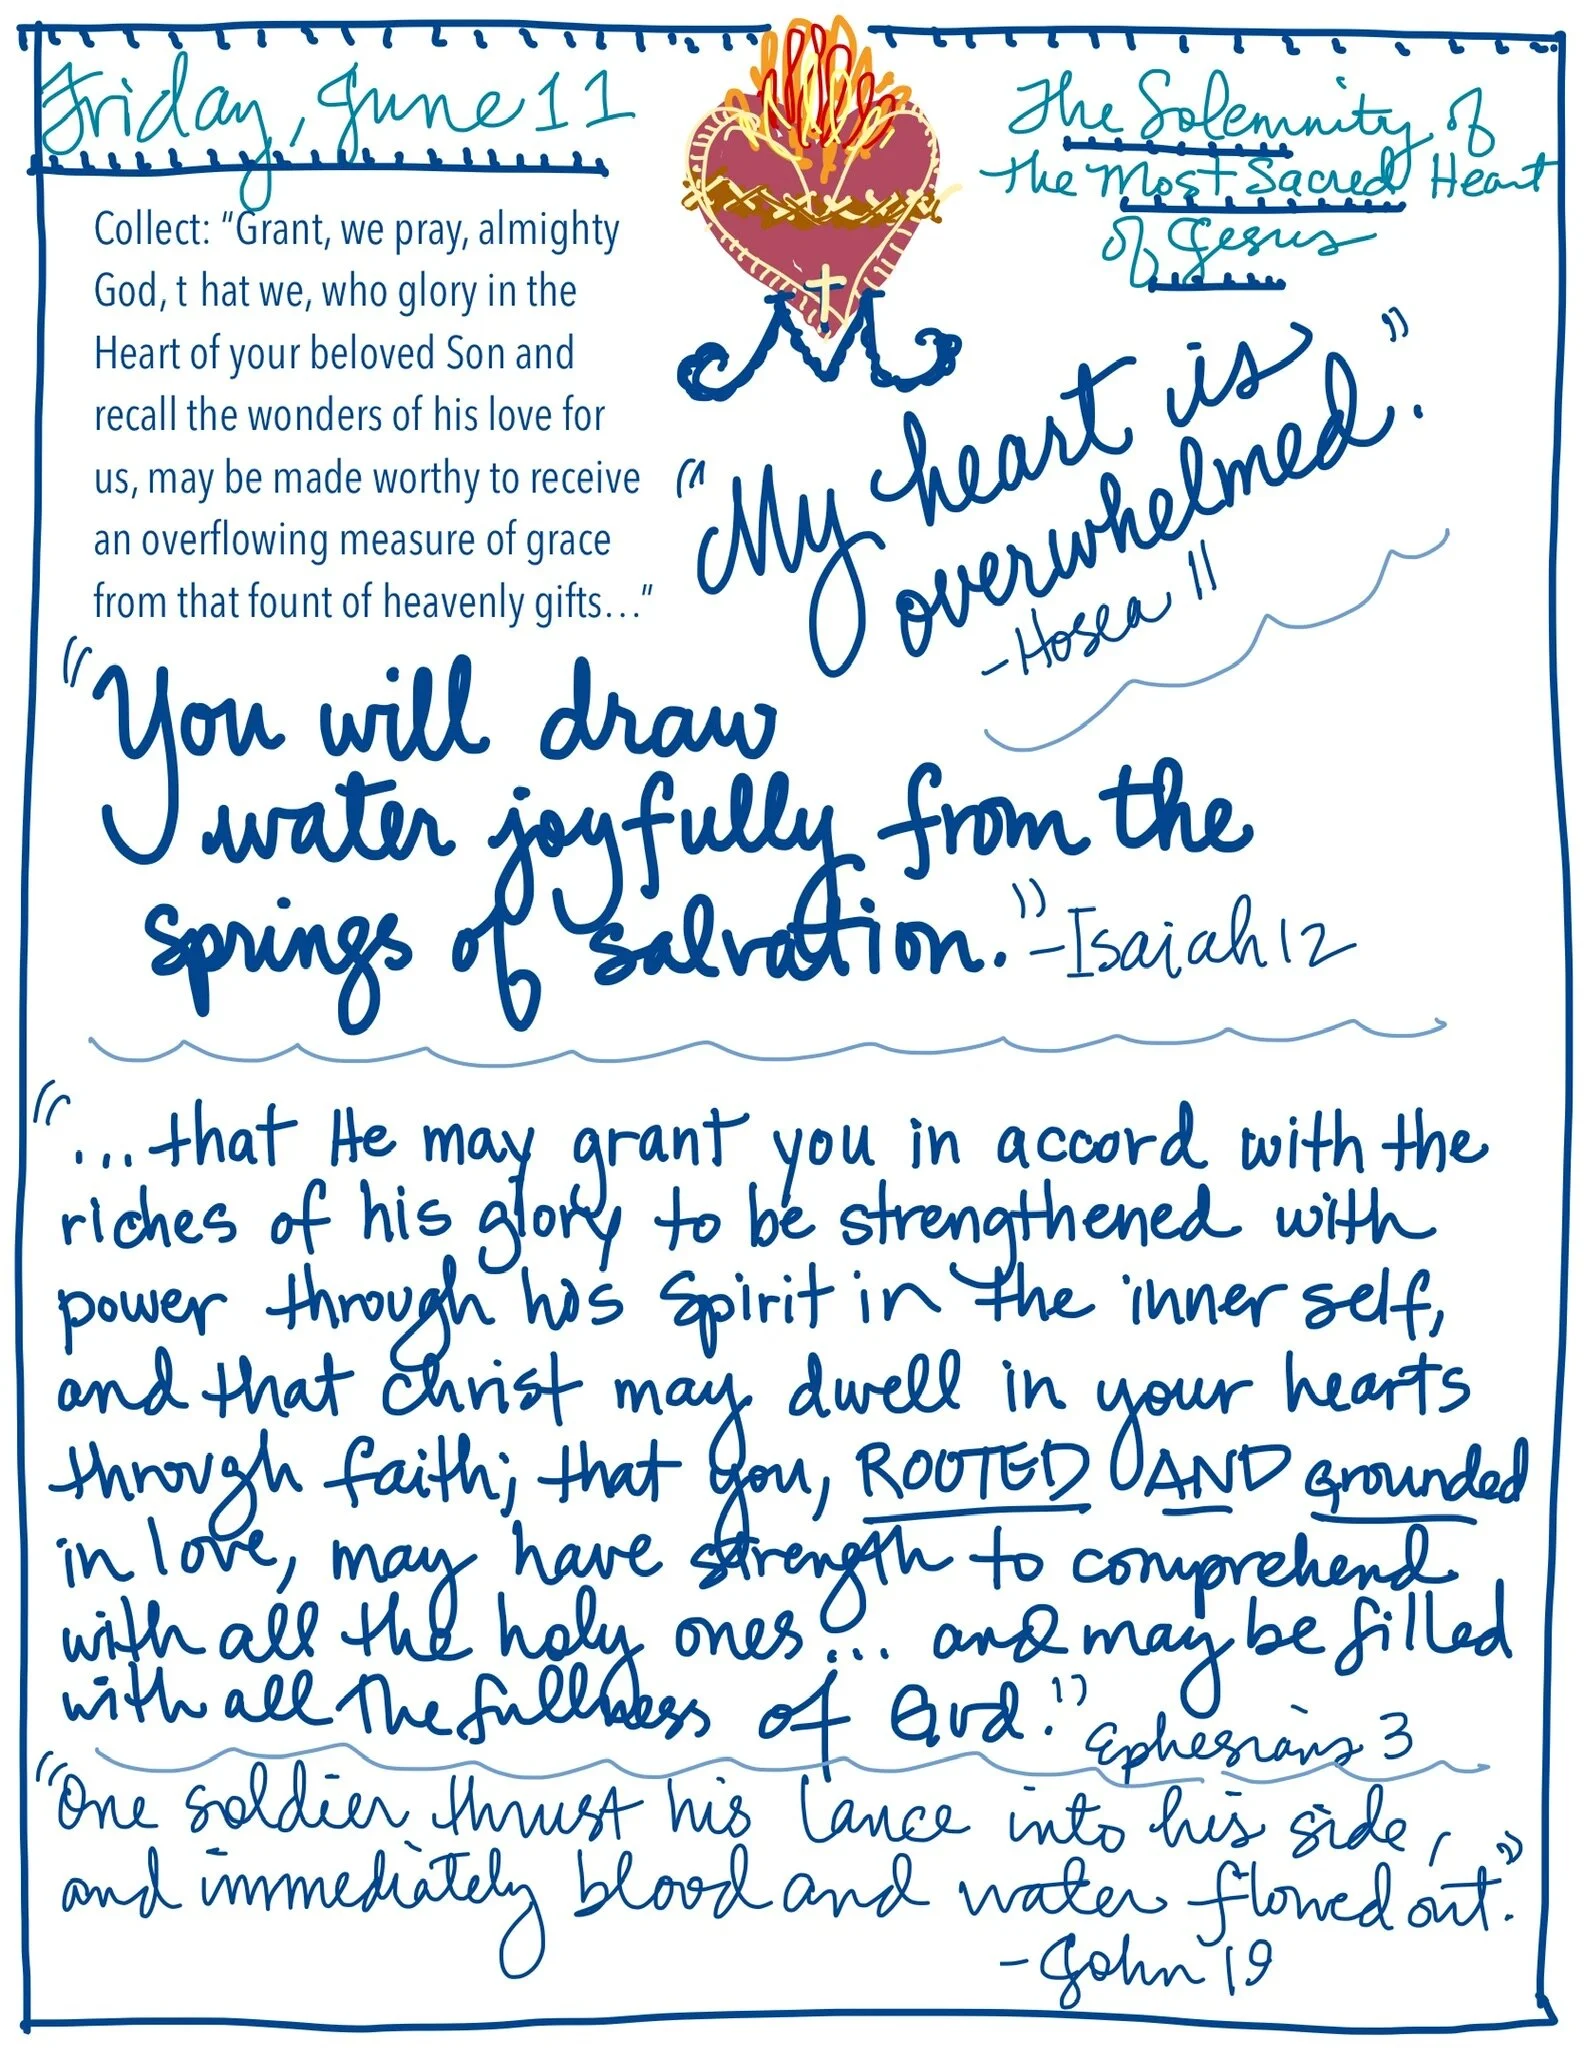 Friday, June 11
The Solemnity of
the Most Sacred Heart
of Jesus
Collect: “Grant, we pray, almighty
God, t hat we, who glory in the
Heart of your beloved Son and
recall the wonders of his love for
us, may be made worthy to receive
an overflowing measure of grace
from that fount of heavenly gifts…”
M
“My heart is
overwhelmed.”
-Hosea 11
“You will draw
water joyfully from the
springs of salvation.”
-Isaiah 12
“...that He may grant you in accord with the
riches of his glory to be strengthened with
power through his Spirit in the inner self,
and that Christ may dwell in your hearts
through faith; that you, ROOTED AND grounded
in love, may have strength to comprehend
with all the holy ones... and may be filled
with all the fullness of God.”
Ephesians 3
“One soldier thrust his lance into his side,
and immediately blood and water flowed out.”
-John 19